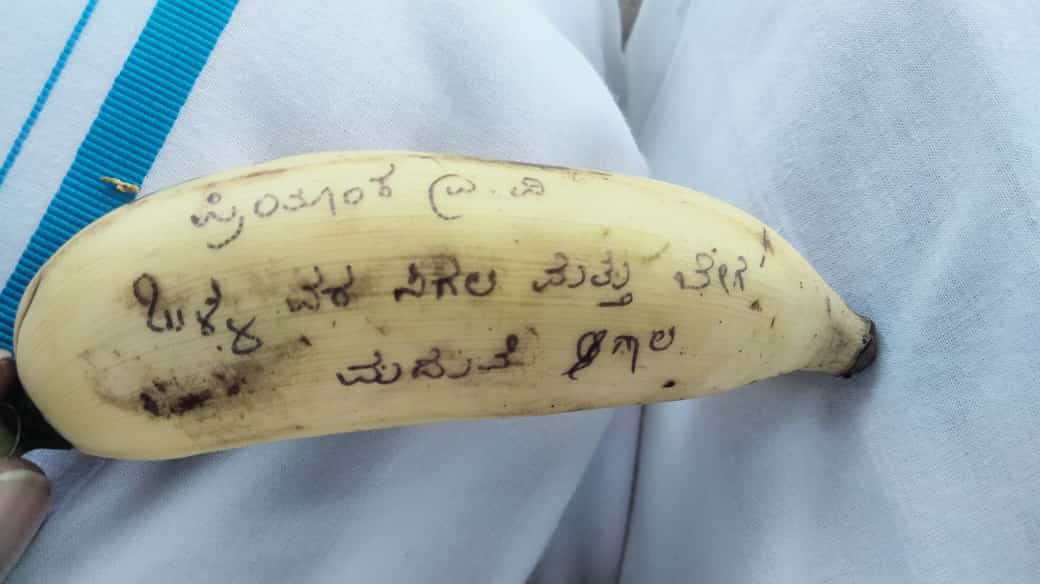 ಪ್ರಿಯಾಂಕ ಬ್ರಿ.ವಿ
ಒಳ್ಳೆ ವರ ಸಿಗಲಿ ಮತ್ತು ಬೇಗ
ಮದುವೆ ಆಗಲಿ